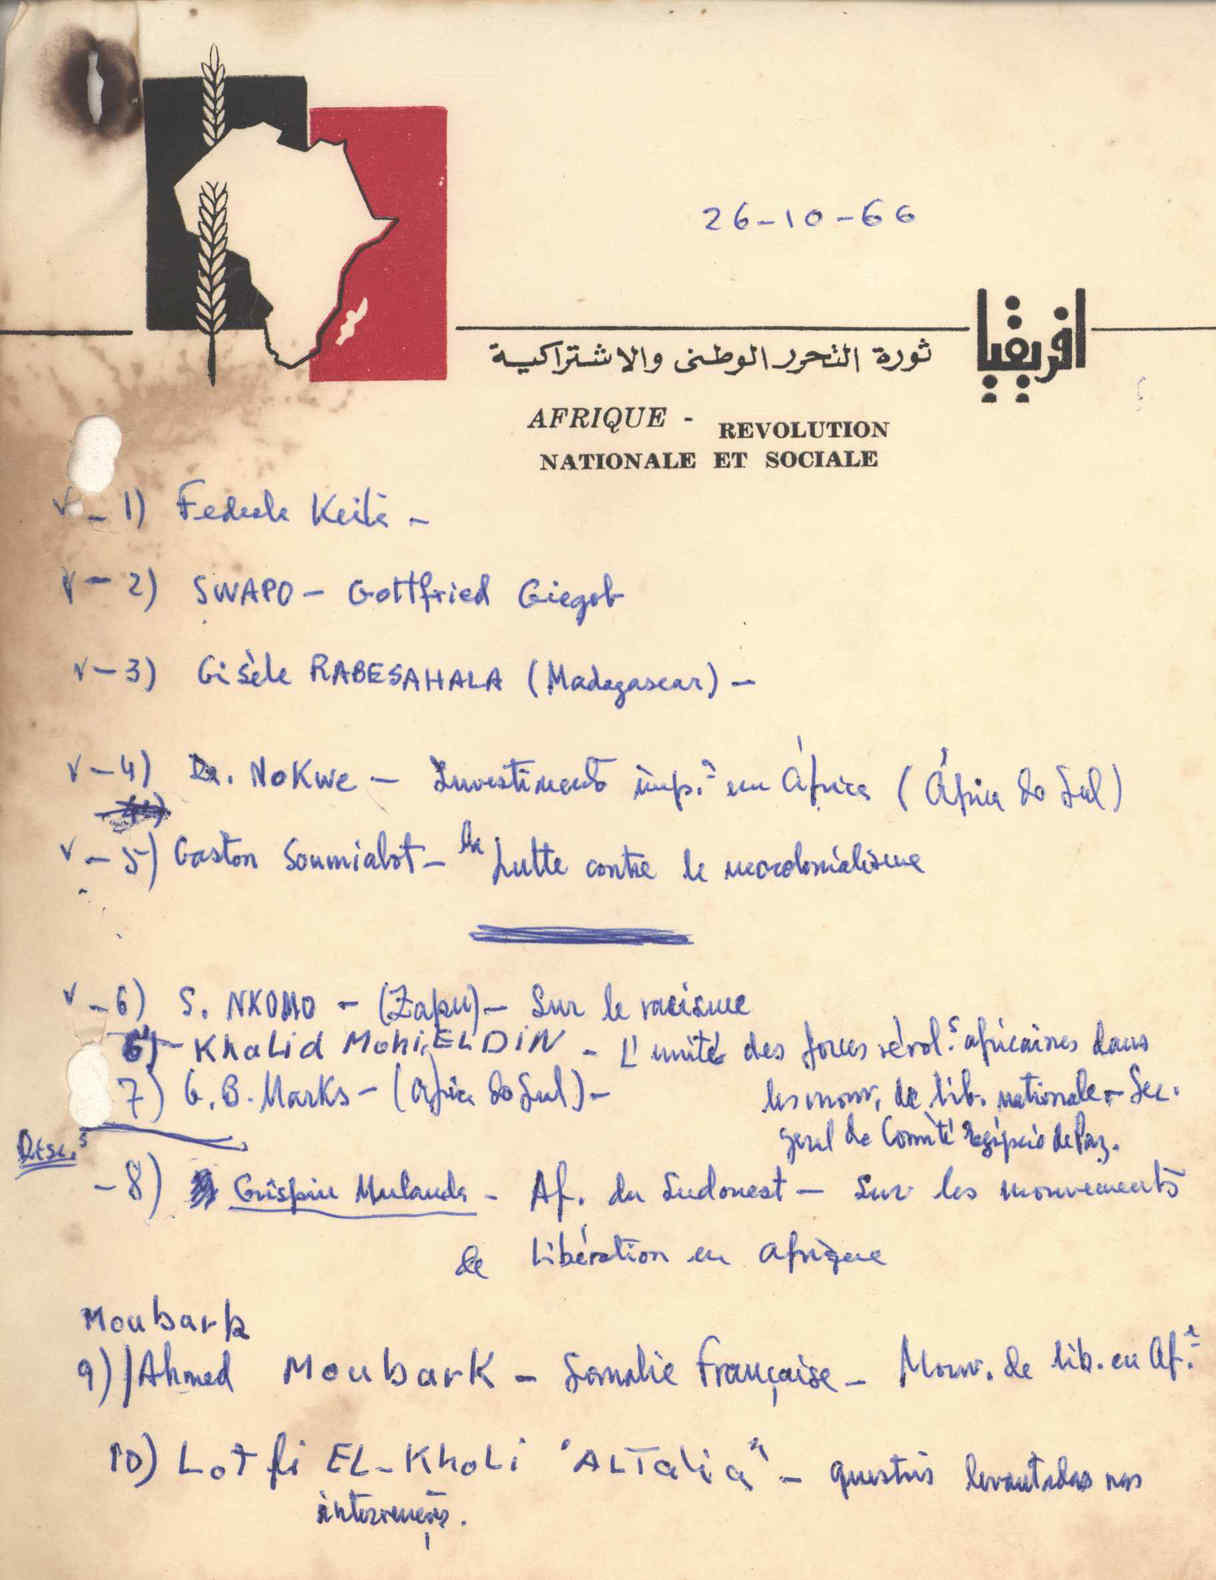 26-10-66
افريقيا
ثورة التحرر الوطنى والاشتراكية
AFRIQUE - REVOLUTION
NATIONALE ET SOCIALE
v - 1) Keita -
v - 2) SWAPO - Gottfried Giegob
v - 3) Gisèle RABESAHALA (Madagascar) -
v - 4) Nokwe - Investimento imp. em África (África do Sul)
v - 5) Gaston Soumialot - La Lutte contre le neocolonialisme
v - 6) S. NKOMO - (Zapu) - Sur le racisme
6) - Khalid Mohi EL DIN - L'unité des forces révol.s africaines dans
7) G. B. Marks - (África do Sul) - les mouv. de lib. nationale - Sec.
geral do Comité egípcio de Paz.
Desc.s
- 8) Crispin Mulanda - Af. du Sudouest - Sur les mouvements
de libération en afrique
Moubark
9) Ahmed Moubark - Somalie Française - Mouv. de lib. en Af.
10) Lotfi EL-Kholi "ALTalia" - questões levantadas nas
intervenções.